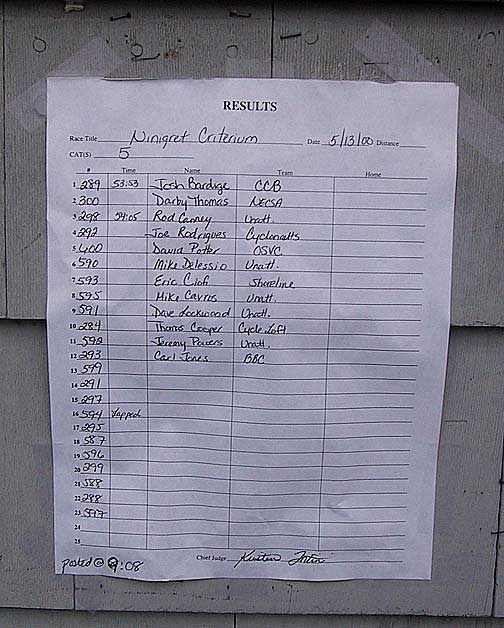 RESULTS
Race Title Ninigret Criterium Date 5/13/00 Distance
CAT(S) 5
# Time Name Team Home
1 289 53:53 Josh Bardige CCB
2 300 Darby Thomas NECSA
3 298 54:05 Rod Canney Unatt.
4 292 Joe Rodrigues Cyclonauts
5 400 David Potter OSVC
6 590 Mike Delessio Unatt.
7 593 Eric Ciofi Shoreline
8 595 Mike Cavros Unatt.
9 591 Dave Lockwood Unatt.
10 284 Thomas Cooper Cycle Loft
11 592 Jeremy Powers Unatt.
12 293 Carl Jones BBC
13 599
14 291
15 297
16 594 Lapped
17 295
18 587
19 596
20 299
21 588
22 288
23 597
24
25
Chief Judge Kirsten
posted @ 9:08